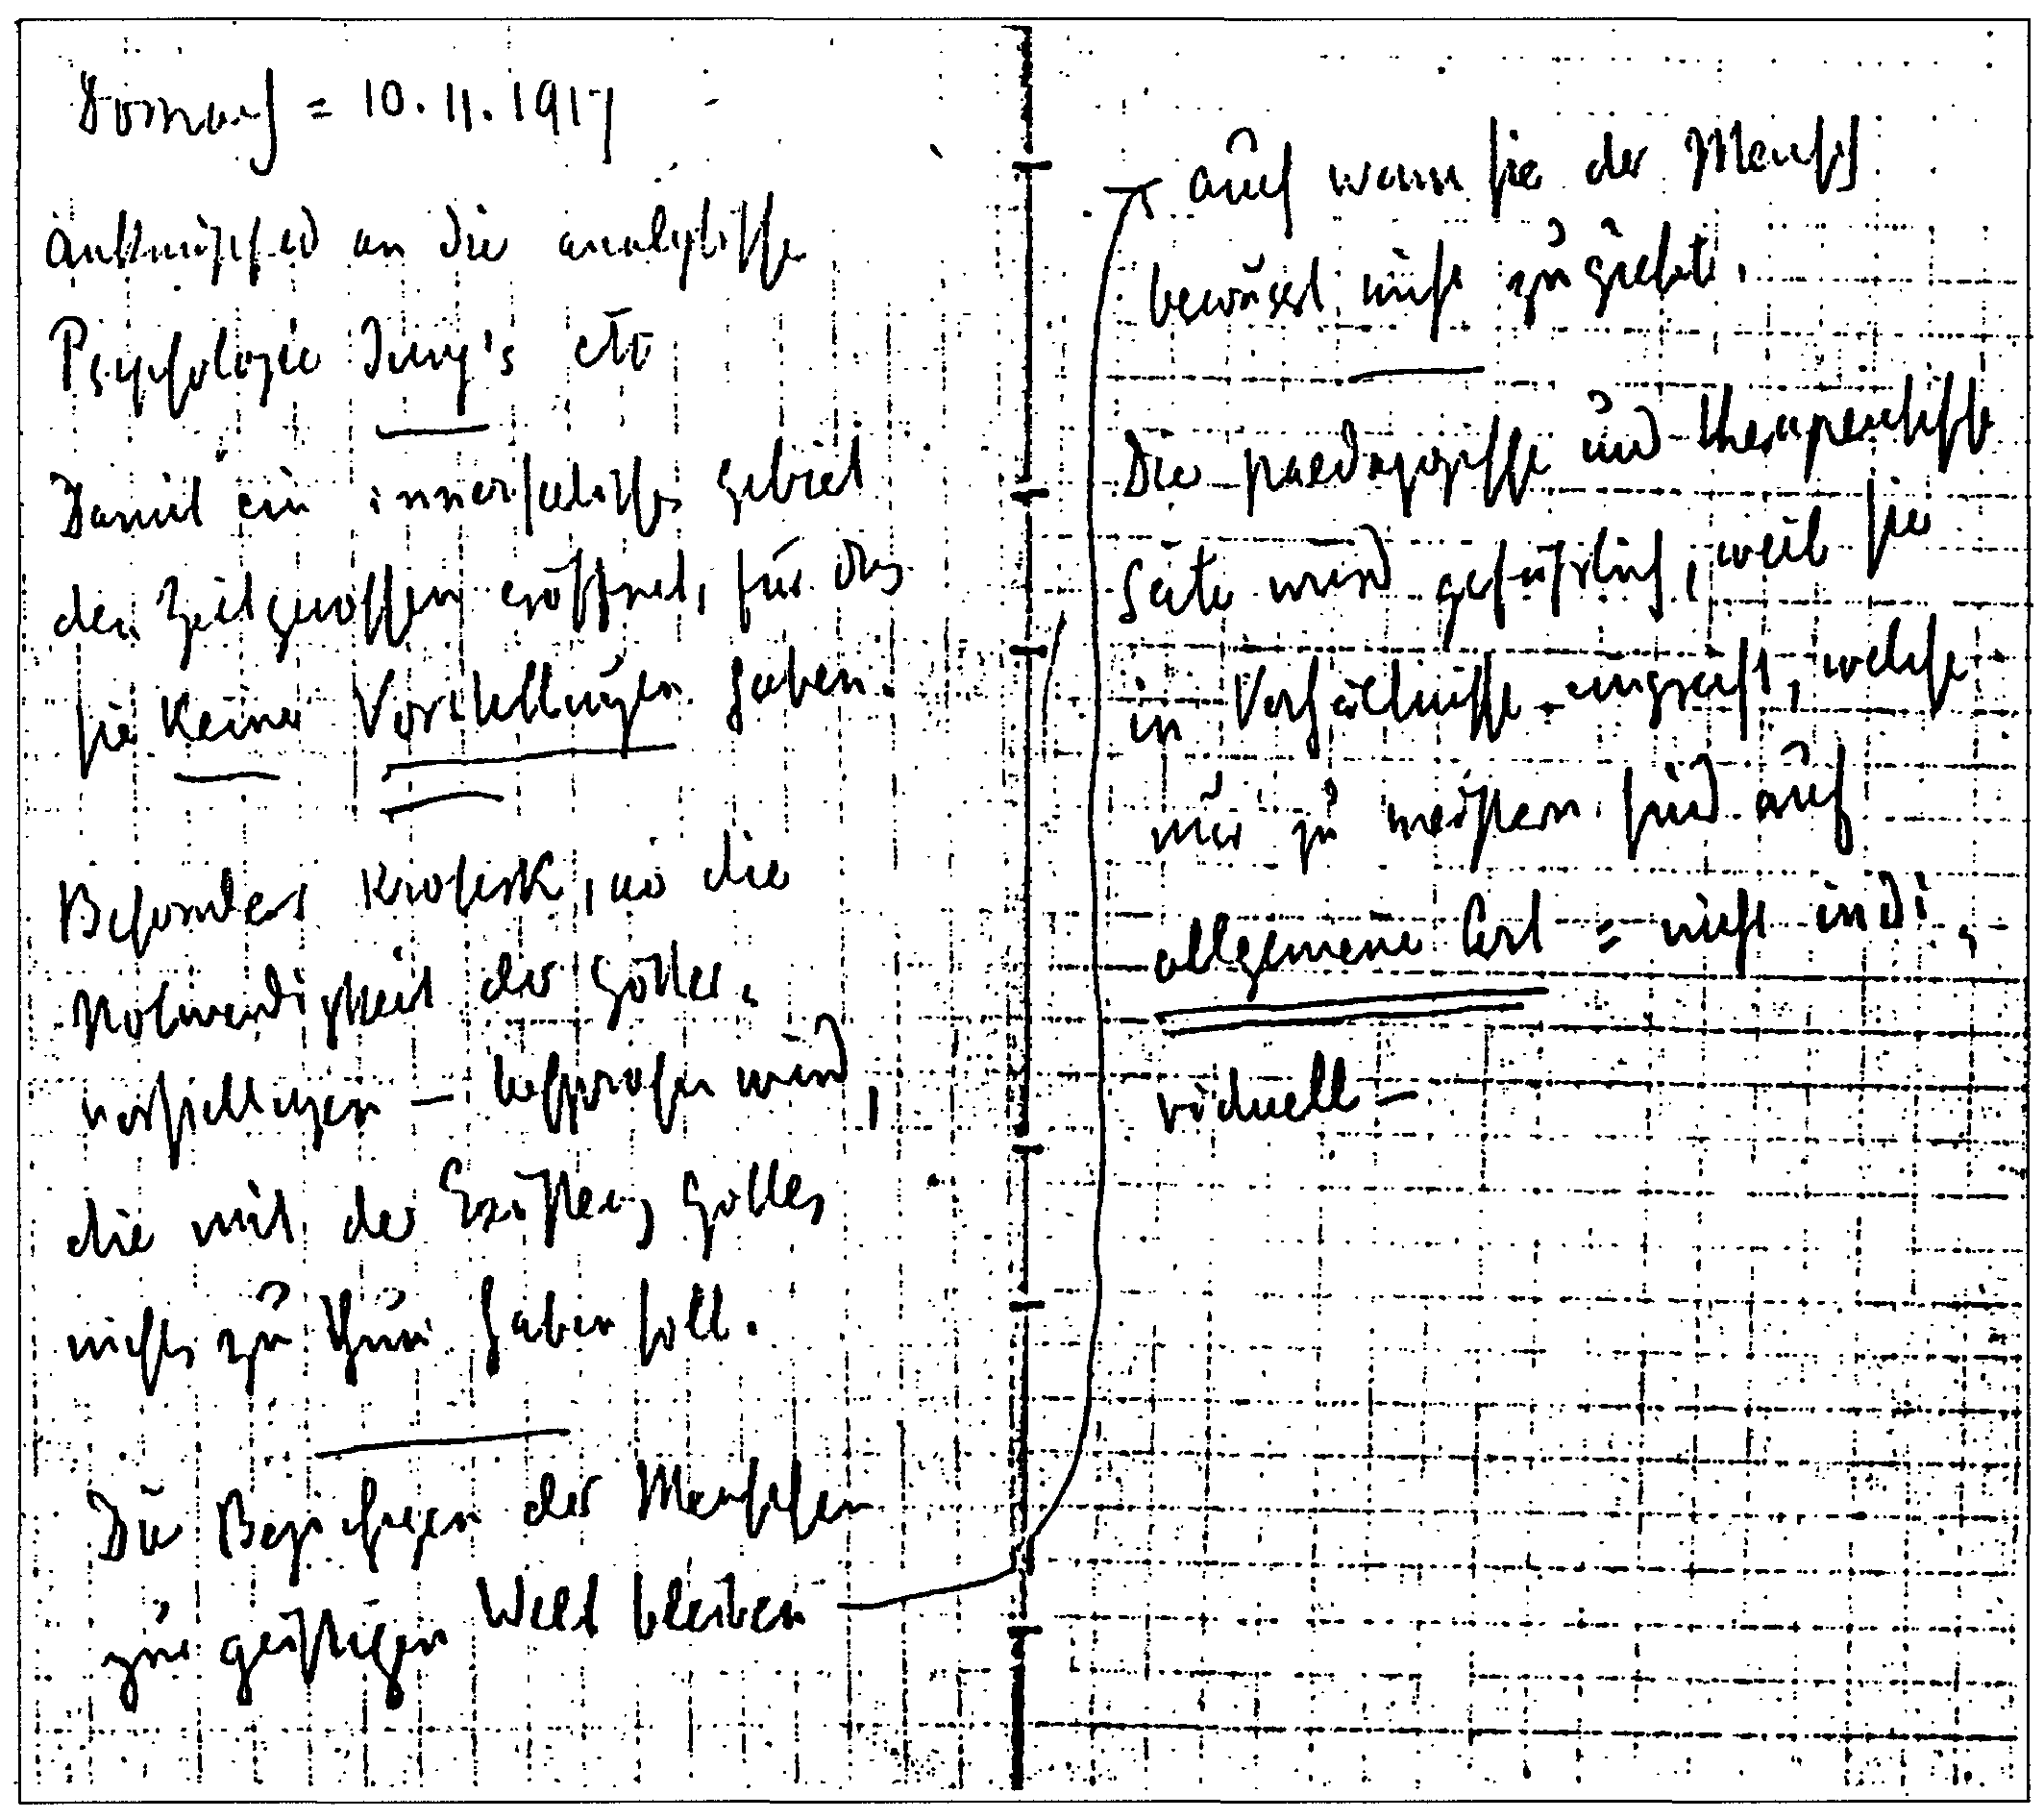 Dornach = 10.11.1917
Anknüpfend an die analytische
Psychologie Jung's etc
Damit ein innerseelisches Gebiet
den Zeitgenossen eröffnet, für das
sie keine Vorstellungen haben.
Besonders grotesk, wo die
Notwendigkeit der Götter-
vorstellungen – besprochen wird,
die mit der Existenz Gottes
nichts zu thun haben soll.
Die Beziehungen der Menschen
zur geistigen Welt bleiben
auch wenn sie der Mensch
bewusst nicht zugiebt.
Die paedagogische und therapeutische
Seite wird gefährlich, weil sie
in Verhältnisse eingreift, welche
nur zu meistern sind auf
allgemeine Art = nicht indi-
viduell –